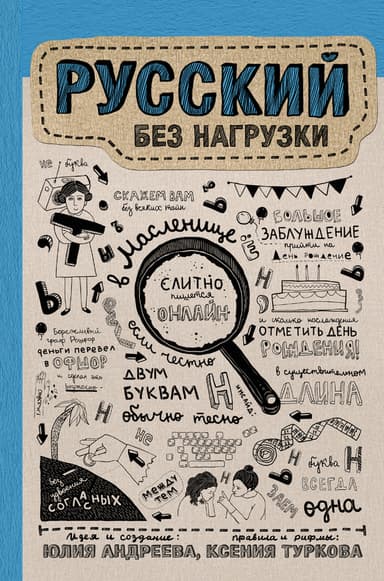 РУССКИЙ
БЕЗ НАГРУЗКИ
не буква
СКАЖЕМ ВАМ
без всяких тайн
Т
Ь
Ы
Ъ
в Масленице
Ё
БОЛЬШОЕ
ЗАБЛУЖДЕНИЕ
прийти на
День рождение
СЛИТНО
пишется
ОНЛАЙН
Н
и сколько наслаждения
ОТМЕТИТЬ ДЕНЬ
РОЖДЕНИЯ!
Бережливый
деньги перевел
В ОФШОР
и сделал это
если честно
ДВУМ
БУКВАМ Н
обычно тесно
никогда:
в существительном
ДЛИНА
не
без удвоения
СОГЛАСНЫХ
между
тем
буква Н
ВСЕГДА
ЗАЕМ
одна
Идея и создание: правила и рифмы:
ЮЛИЯ АНДРЕЕВА, КСЕНИЯ ТУРКОВА